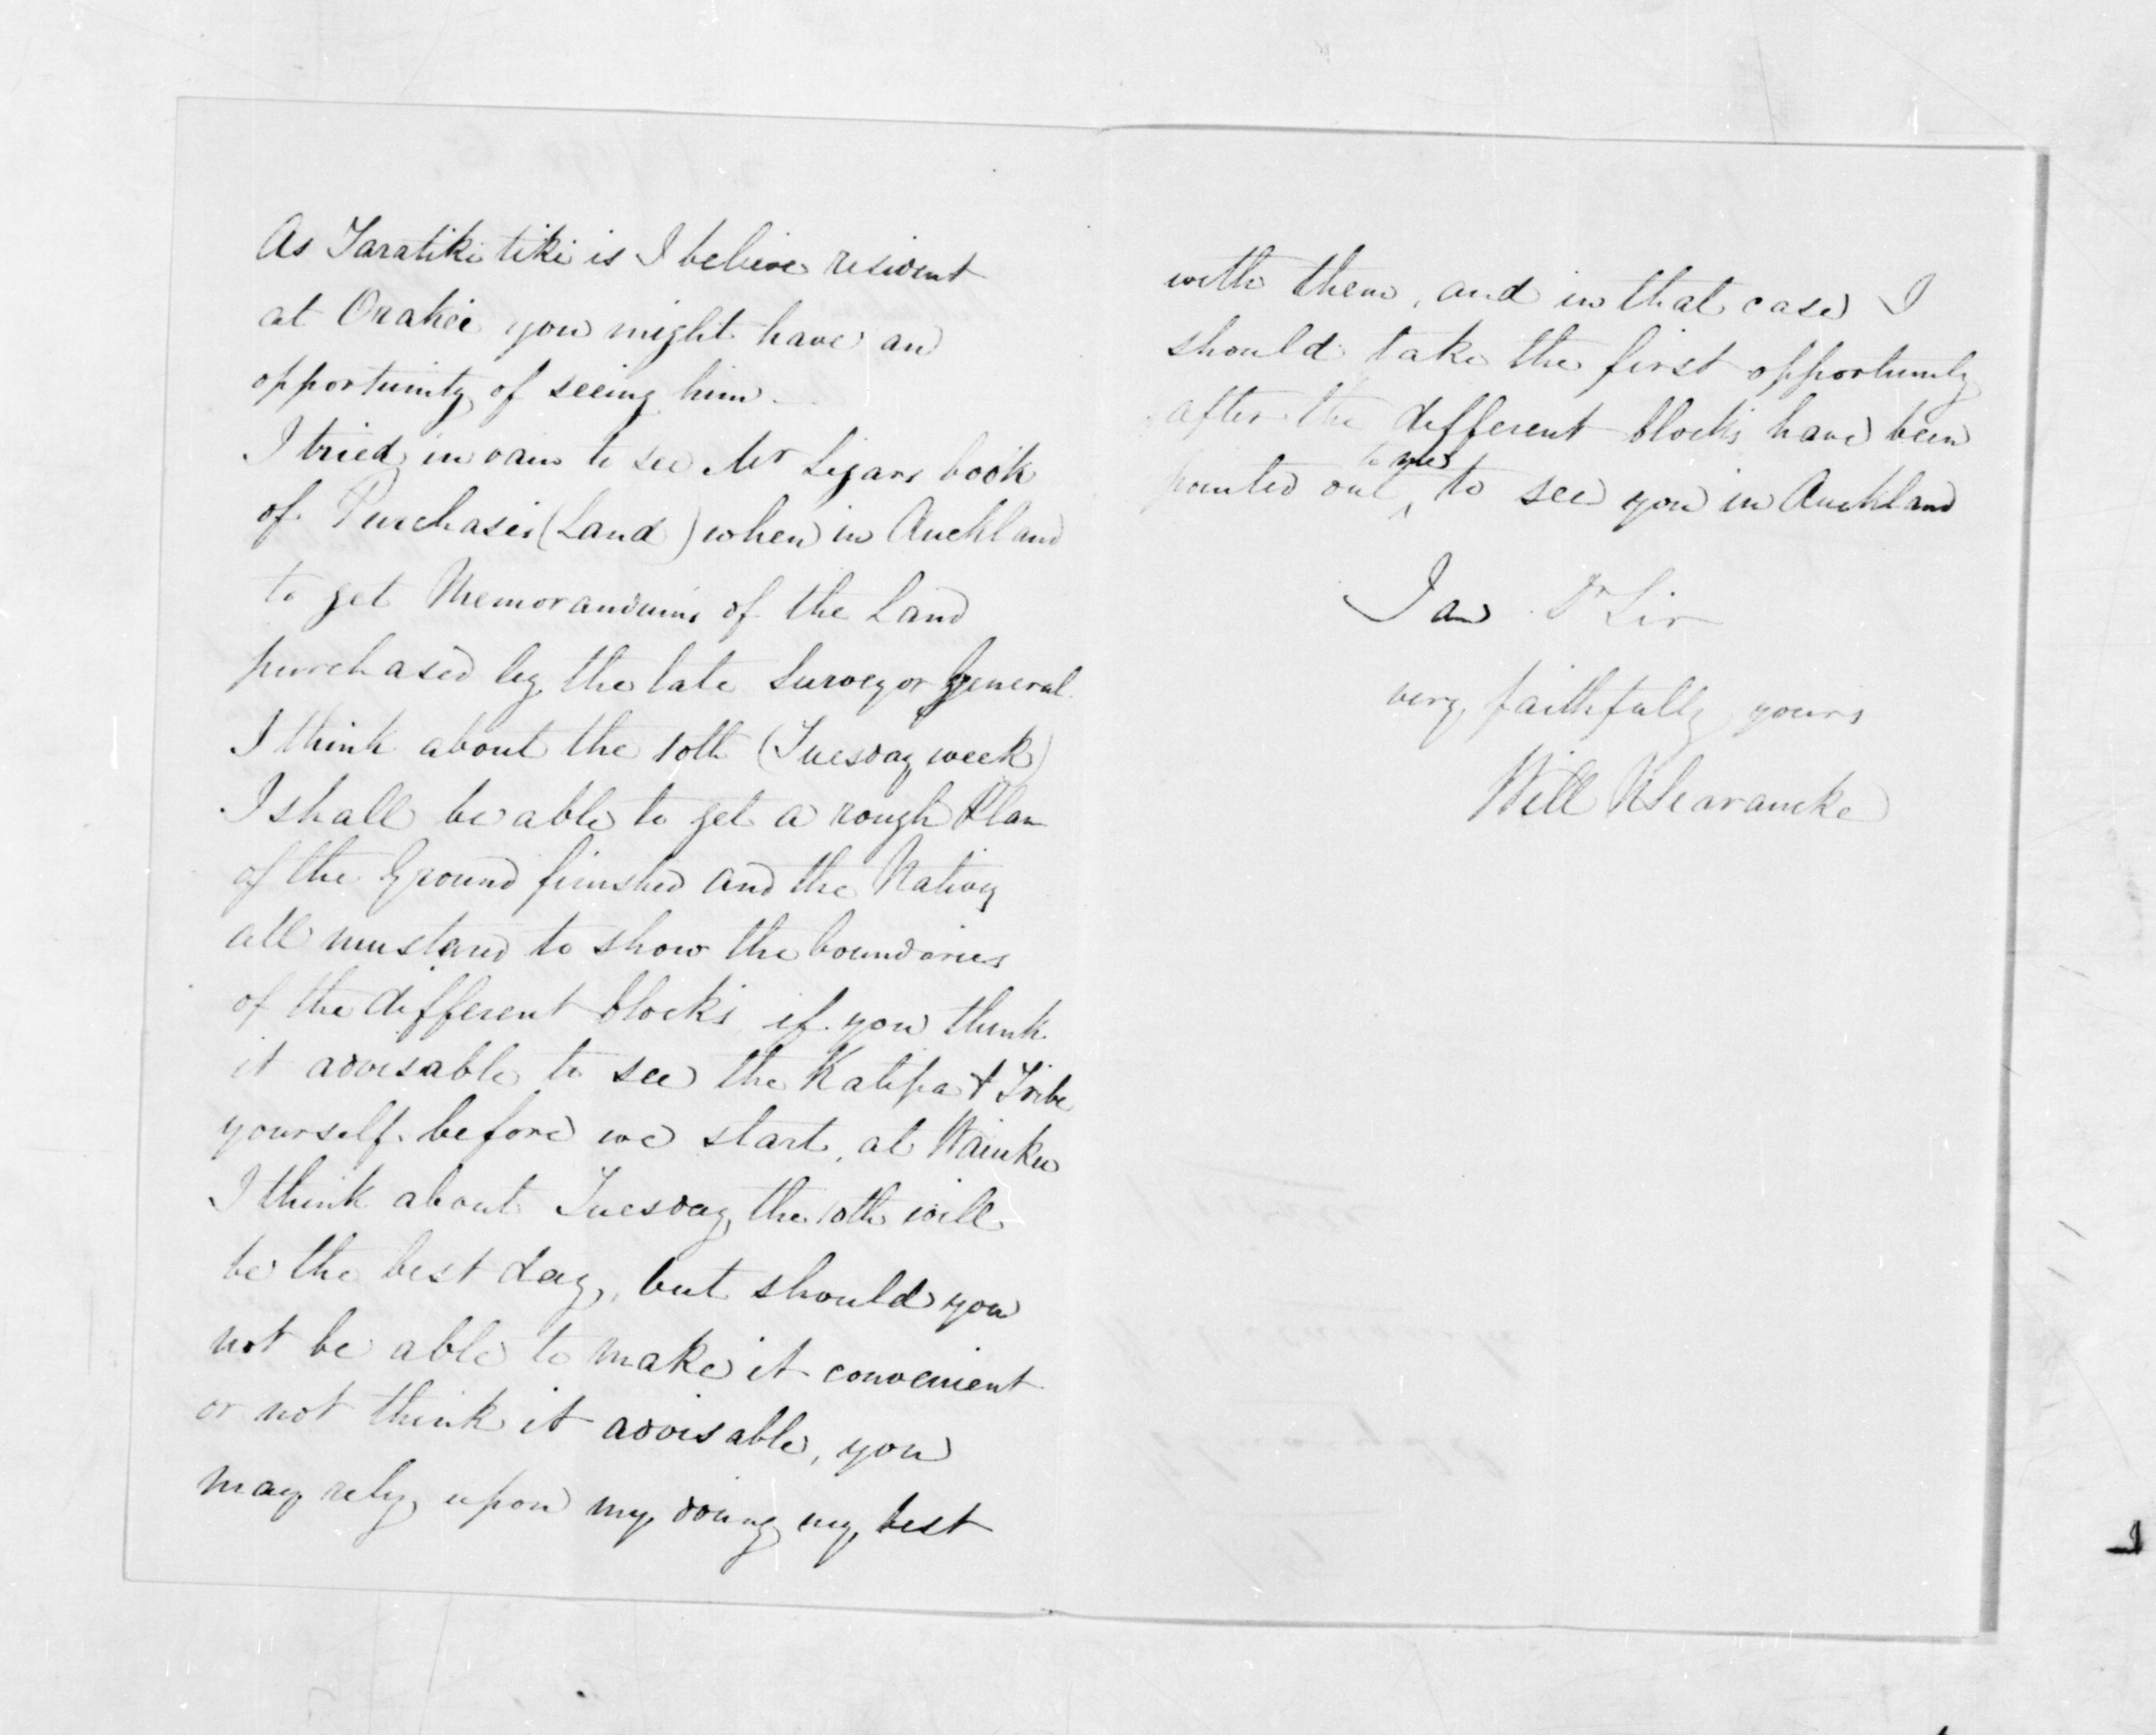 As Taratikitiki is I believe resident
at Orakei you might have an
opportunity of seeing him.
I tried in vain to see Mr Ligars book
of Purchases (Land) when in Auckland
to get Memorandums of the Land
purchased by the late Surveyor General.
I think about the 10th (Tuesday week)
I shall be able to get a rough Plan
of the Ground finished and the Natives
all mustered to show the boundaries
of the different blocks, if you think
it advisable to see the Katipa & Tribe
yourself before we start, at Waiuku
I think about Tuesday the 10th will
be the best day, but should you
not be able to make it convenient
or not think it advisable, you
may rely upon my doing my best
with them, and in that case I
should take the first opportunity
after the different blocks have been
to me
pointed out ‸ to see you in Auckland
I am Dr Sir
very faithfully yours
Will N Searancke